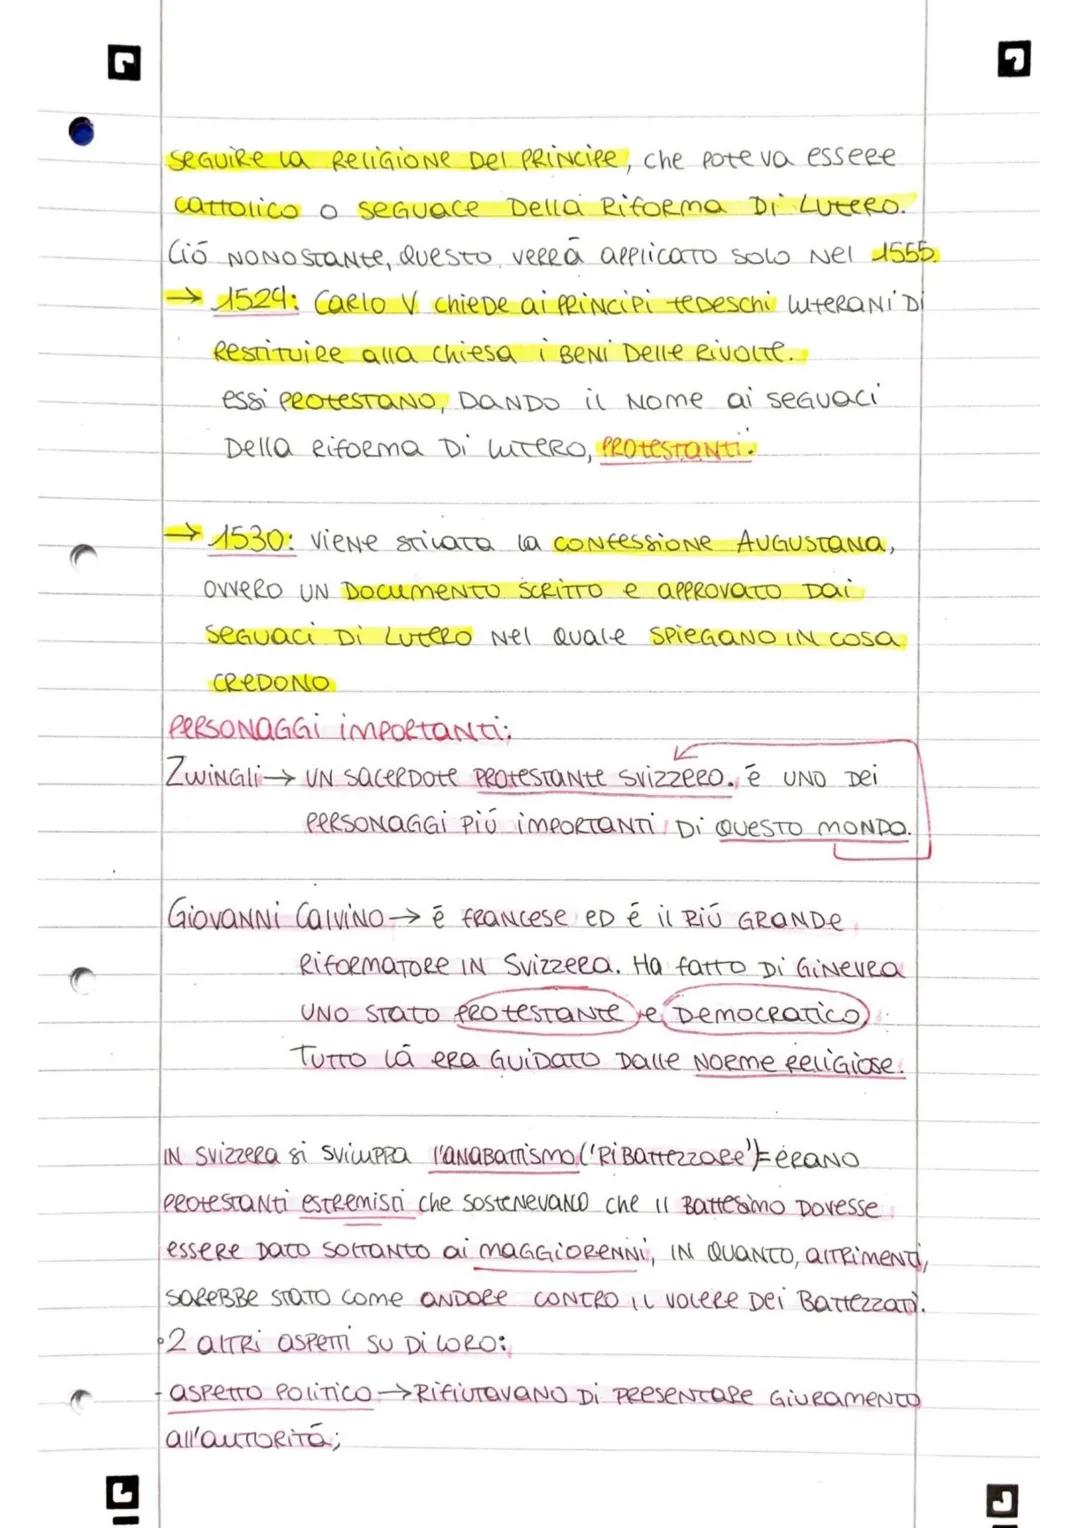 seguire la religione del principe, che poteva essere
cattolico o seguace della Riforma di Lutero.
Ció nonostante, questo verrá applicato solo nel 1555.
→ 1529: Carlo V chiede ai principi tedeschi luterani di
restituire alla chiesa i beni delle rivolte.
essi protestano, dando il nome ai seguaci
della riforma di lutero, protestanti.
→ 1530: viene stilata la confessione Augustana,
ovvero un documento scritto e approvato dai
seguaci di Lutero nel quale spiegano in cosa
credono
Personaggi importanti:
Zwingli → un sacerdote protestante svizzero. é uno dei
personaggi piú importanti di questo mondo.
Giovanni Calvino → é francese ed é il piú grande
riformatore in Svizzera. Ha fatto di Ginevra
uno stato protestante e democratico
Tutto lá era guidato dalle norme religiose.
In Svizzera si sviluppa l'anabattismo ('Ribattezzare') = erano
protestanti estremisti che sostenevano che il Battesimo dovesse
essere dato soltanto ai maggiorenni, in quanto, altrimenti,
sarebbe stato come andare contro il volere dei Battezzati.
• 2 altri aspetti su di loro:
- aspetto politico → Rifiutavano di presentare giuramento
all'autoritá;